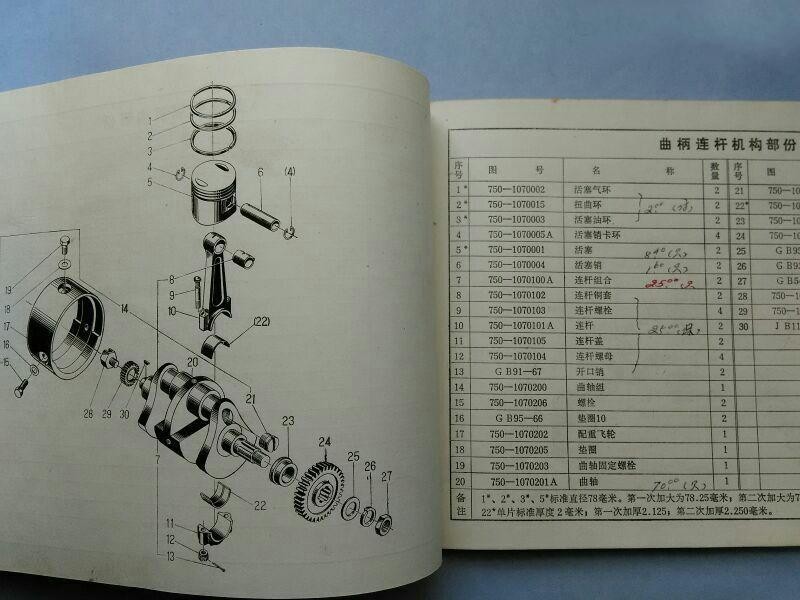 1
2
3
4
5
6
(4)
8
9
10
(22)
19
18
14
17
16
15
28
29
30
20
21
23
24
25
26
27
7
22
11
12
13
曲柄连杆机构部份
序号 图 号 名 称 数量 序号 图
1* 750—1070002 活塞气环 2 21 750—10
2* 750—1070015 扭曲环 2 22* 750—10
3* 750—1070003 活塞油环 2 23 750—10
4 750—1070005A 活塞销卡环 4 24 750—10
5* 750—1070001 活塞 2 25 GB93
6 750—1070004 活塞销 2 26 GB93
7 750—1070100A 连杆组合 25.00 2 27 GB54
8 750—1070102 连杆铜套 2 28 750—1
9 750—1070103 连杆螺栓 4 29 750—1
10 750—1070101A 连杆 2 30 JB11
11 750—1070105 连杆盖 2
12 750—1070104 连杆螺母 4
13 GB91—67 开口销 2
14 750—1070200 曲轴组 1
15 750—1070206 螺栓 2
16 GB95—66 垫圈10 2
17 750—1070202 配重飞轮 1
18 750—1070205 垫圈 1
19 750—1070203 曲轴固定螺栓 1
20 750—1070201A 曲轴 70.00 1
备注 1*、2*、3*、5*标准直径78毫米。第一次加大为78.25毫米;第二次加大为7
22*单片标准厚度2毫米;第一次加厚2.125;第二次加厚2.250毫米。